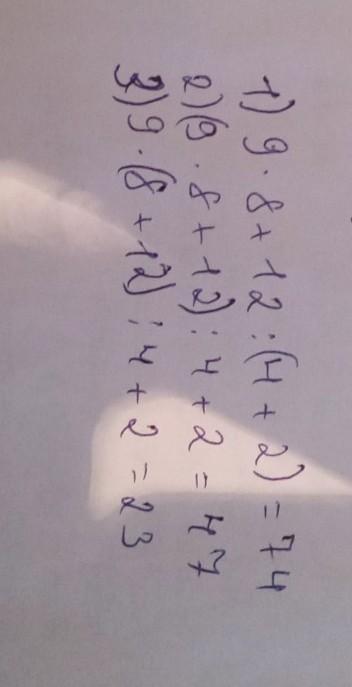 1) 9 · 8 + 12 : (4 + 2) = 74
2) (9 · 8 + 12) : 4 + 2 = 47
3) 9 · (8 + 12) : 4 + 2 = 23